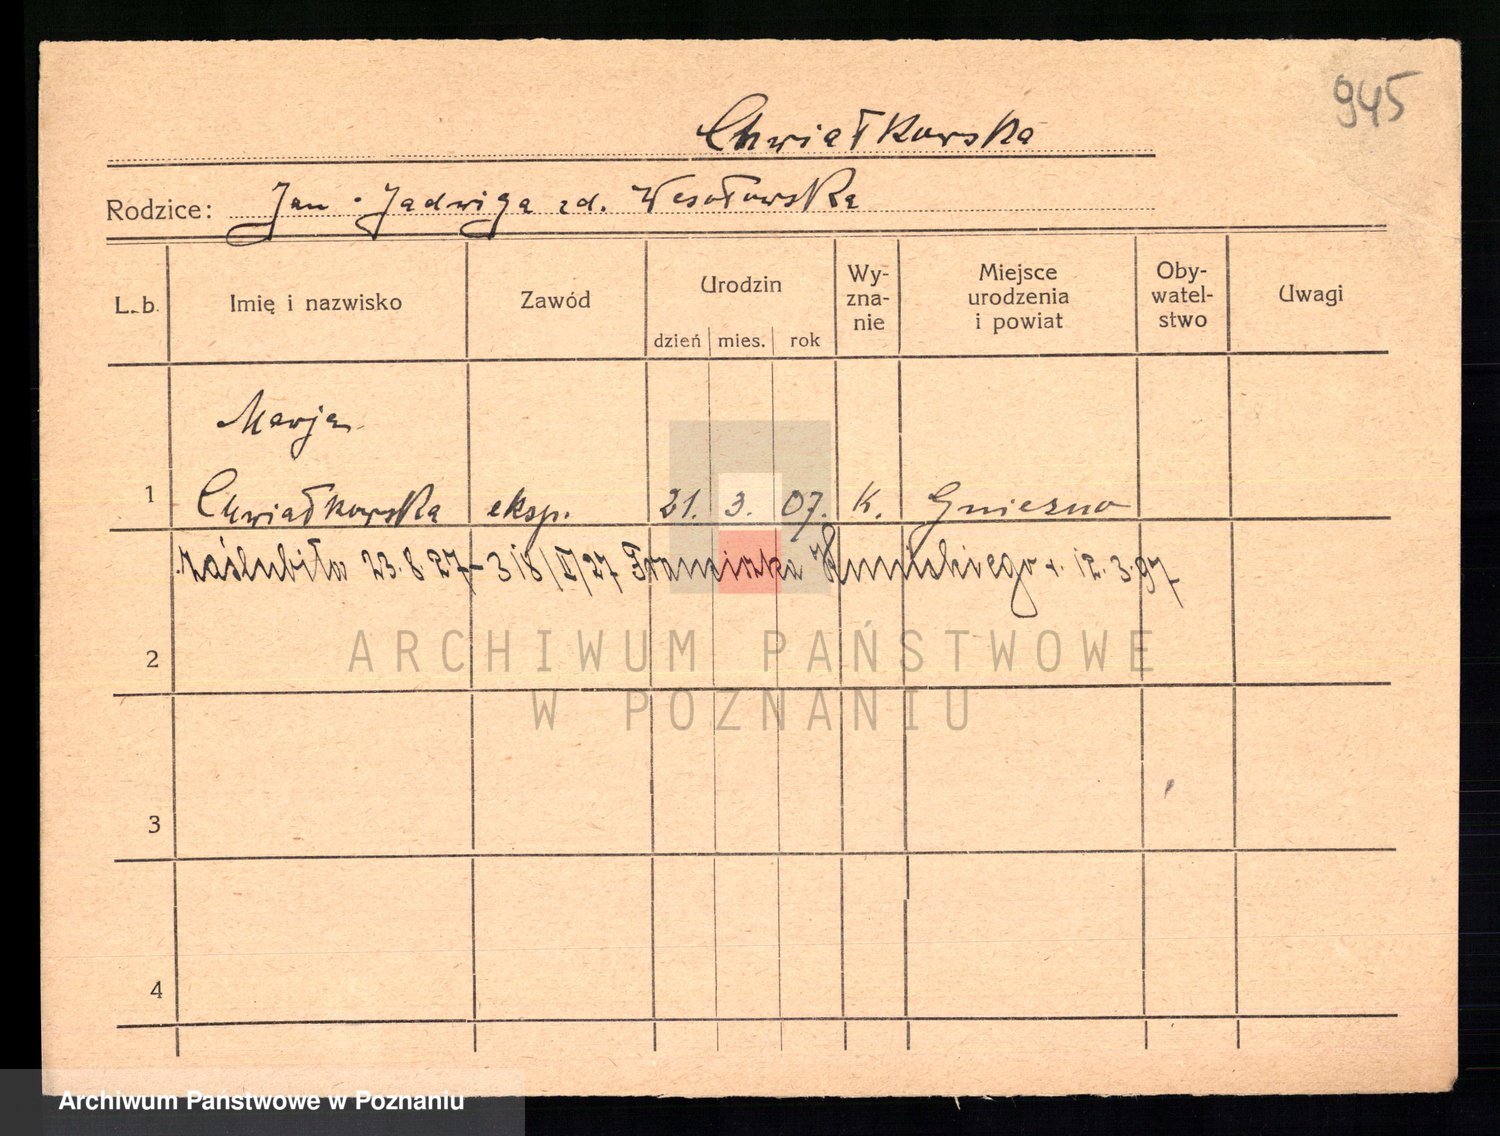 945
Chwiałkowska
Rodzice: Jan - Jadwiga zd. Wesołowska
L. b. Imię i nazwisko Zawód Urodzin dzień mies. rok Wy-zna-nie Miejsce urodzenia i powiat Oby-watel-stwo Uwagi
Marja
1 Chwiałkowska eksp. 21. 3. 07. K. Gniezno
zaślubiła 23. 8. 27 - 318/II/27 Franciszka 12. 3. 97
2
3
4
ARCHIWUM PAŃSTWOWE
W POZNANIU
Archiwum Państwowe w Poznaniu